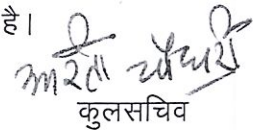 है।
आरती चौधरी
कुलसचिव